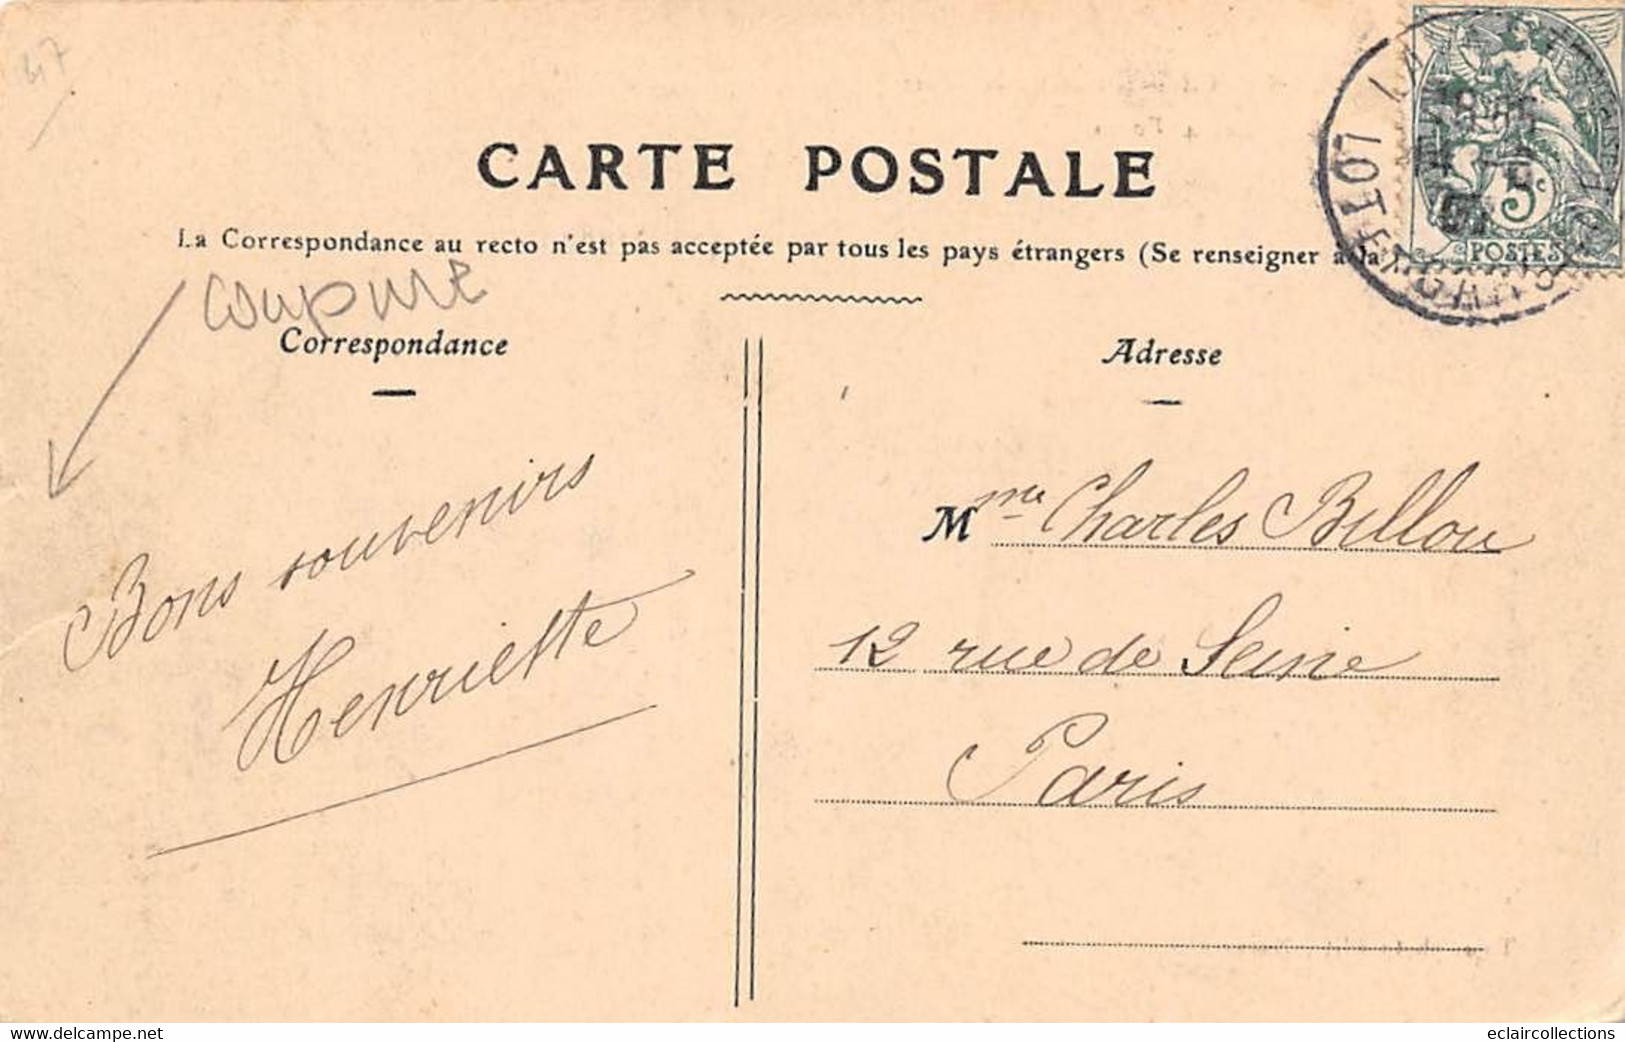 47
CARTE POSTALE
La Correspondance au recto n'est pas acceptée par tous les pays étrangers (Se renseigner à la
coupure
Correspondance
Adresse
5c
POSTES
LOT
Bons souvenirs
Henriette
Mme Charles Billou
12 rue de Seine
Paris
www.delcampe.net
eclaircollections